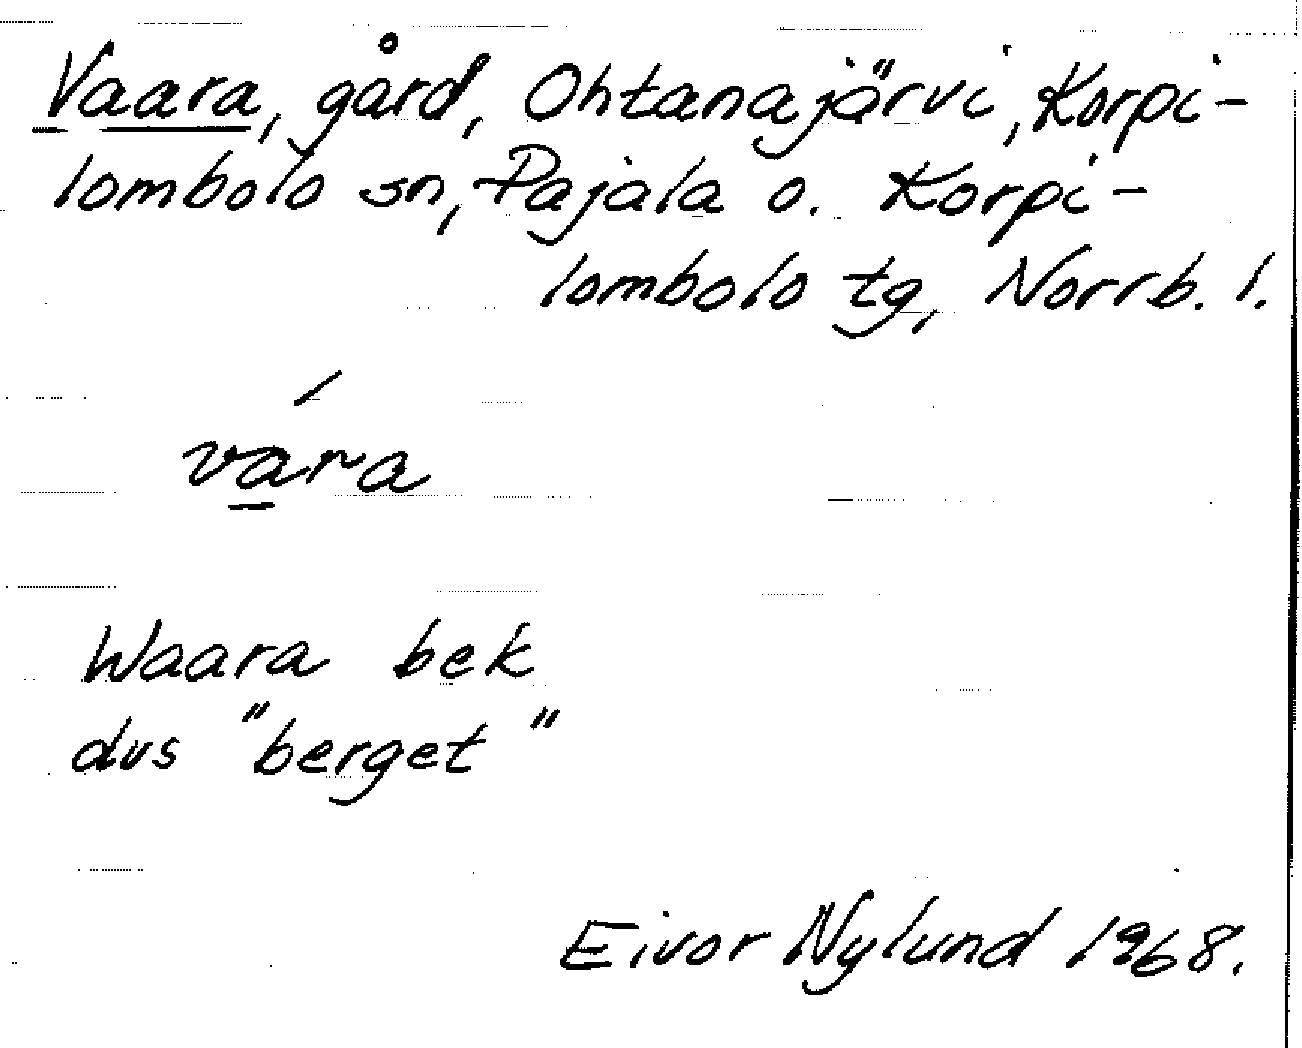 Vaara, gård, Ohtanajärvi, Korpi-
lombolo sn, Pajala o. Korpi-
lombolo tg, Norrb. l.
vá̱ra
Waara bek
dvs "berget"
Eivor Nylund 1968.